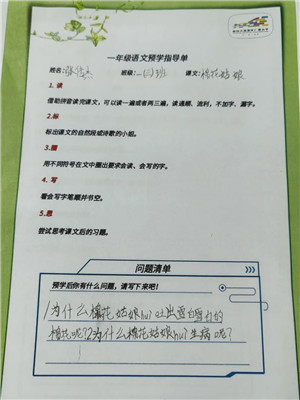 一年级语文预学指导单
姓名: 班级:一(3)班 课文:棉花姑娘
1. 读
借助拼音读完课文,可以读一遍或者两三遍,读通顺,流利,不加字、漏字。
2.标
标出课文的自然段或诗歌的小姐。
3.圈
用不同符号在文中圈出要求会读、会写的字。
4. 写
看会写字笔顺并书空。
5.思
尝试思考课文后的习题。
问题清单
预学后你有什么问题,请写下来吧!
1为什么棉花姑娘huì吐出雪白雪白的
棉花呢?2为什么棉花姑娘huì生病呢?